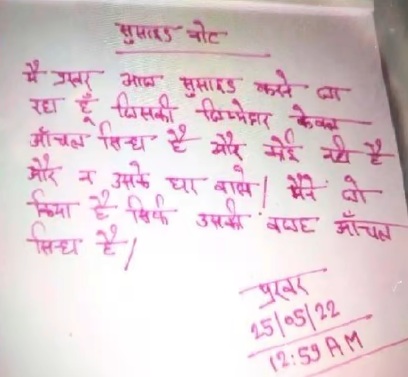 सुसाइड नोट
मै प्रखर आज सुसाइड करने जा
रहा हूँ जिसकी जिम्मेदार केवल
आँचल सिंध है और कोई नही है
और न उसके घर वाले। मैंने जो
किया है सिर्फ उसकी वजह आँचल
सिन्ध है।
प्रखर
25/05/22
12:59 AM